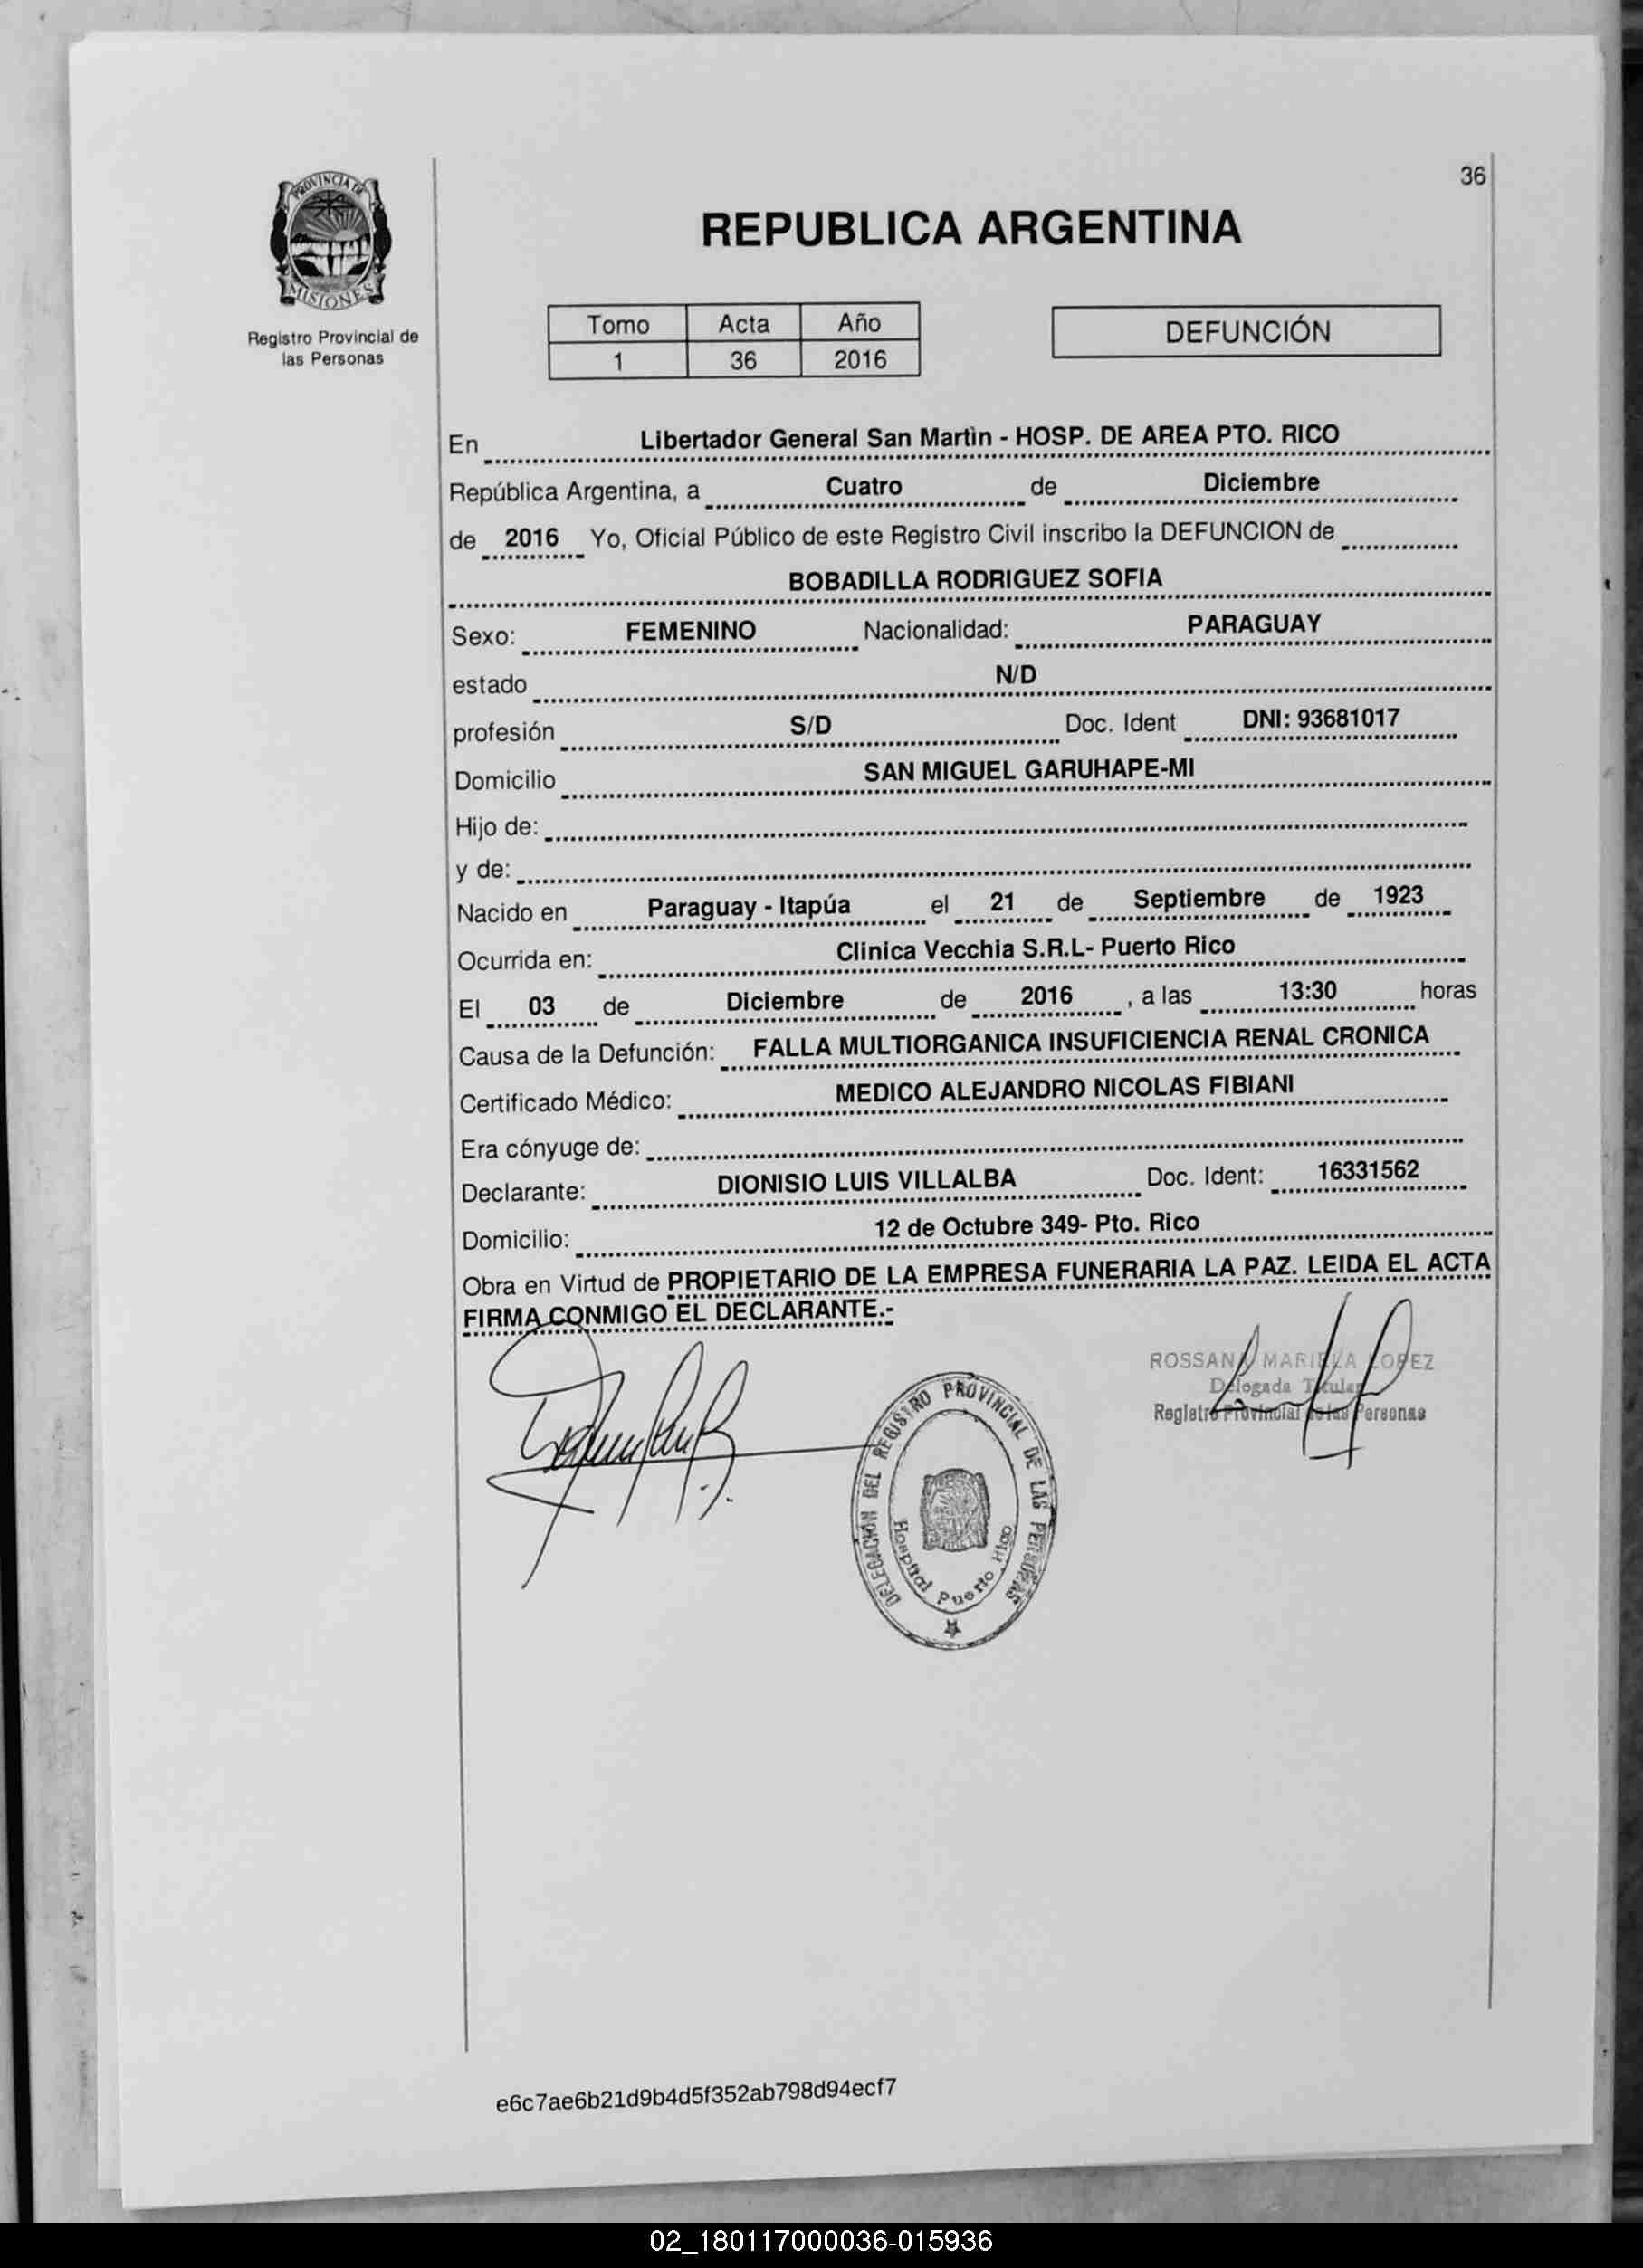 36
PROVINCIA DE
MISIONES
Registro Provincial de
las Personas
REPUBLICA ARGENTINA
Tomo Acta Año
1 36 2016
DEFUNCIÓN
En Libertador General San Martìn - HOSP. DE AREA PTO. RICO
República Argentina, a Cuatro de Diciembre
de 2016 Yo, Oficial Público de este Registro Civil inscribo la DEFUNCION de
BOBADILLA RODRIGUEZ SOFIA
Sexo: FEMENINO Nacionalidad: PARAGUAY
estado N/D
profesión S/D Doc. Ident DNI: 93681017
Domicilio SAN MIGUEL GARUHAPE-MI
Hijo de:
y de:
Nacido en Paraguay - Itapúa el 21 de Septiembre de 1923
Ocurrida en: Clinica Vecchia S.R.L- Puerto Rico
El 03 de Diciembre de 2016 , a las 13:30 horas
Causa de la Defunción: FALLA MULTIORGANICA INSUFICIENCIA RENAL CRONICA
Certificado Médico: MEDICO ALEJANDRO NICOLAS FIBIANI
Era cónyuge de:
Declarante: DIONISIO LUIS VILLALBA Doc. Ident: 16331562
Domicilio: 12 de Octubre 349- Pto. Rico
Obra en Virtud de PROPIETARIO DE LA EMPRESA FUNERARIA LA PAZ. LEIDA EL ACTA
FIRMA CONMIGO EL DECLARANTE.-
ROSSANA MARIELA LOPEZ
Delegada Titular
Registro Provincial de las Personas
DELEGACIÓN DEL REGISTRO PROVINCIAL DE LAS PERSONAS
Hospital Puerto Rico
e6c7ae6b21d9b4d5f352ab798d94ecf7
02_180117000036-015936